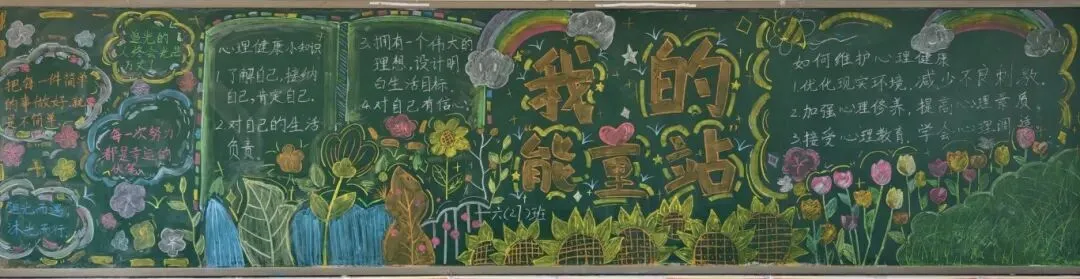 追光的
把每一件简单
的事做好,就
是不简单
每一次努力
都是幸运的
伏笔
心理健康小知识
1.了解自己,接纳
自己,肯定自己.
2.对自己的生活
负责
3.拥有一个伟大的
理想,设计明
白生活目标
4.对自己有信心
我的
能量站
六(2)班
如何维护心理健康
1.优化现实环境,减少不良刺激.
2.加强心理修养,提高心理素质.
3.接受心理教育,学会心理调适.